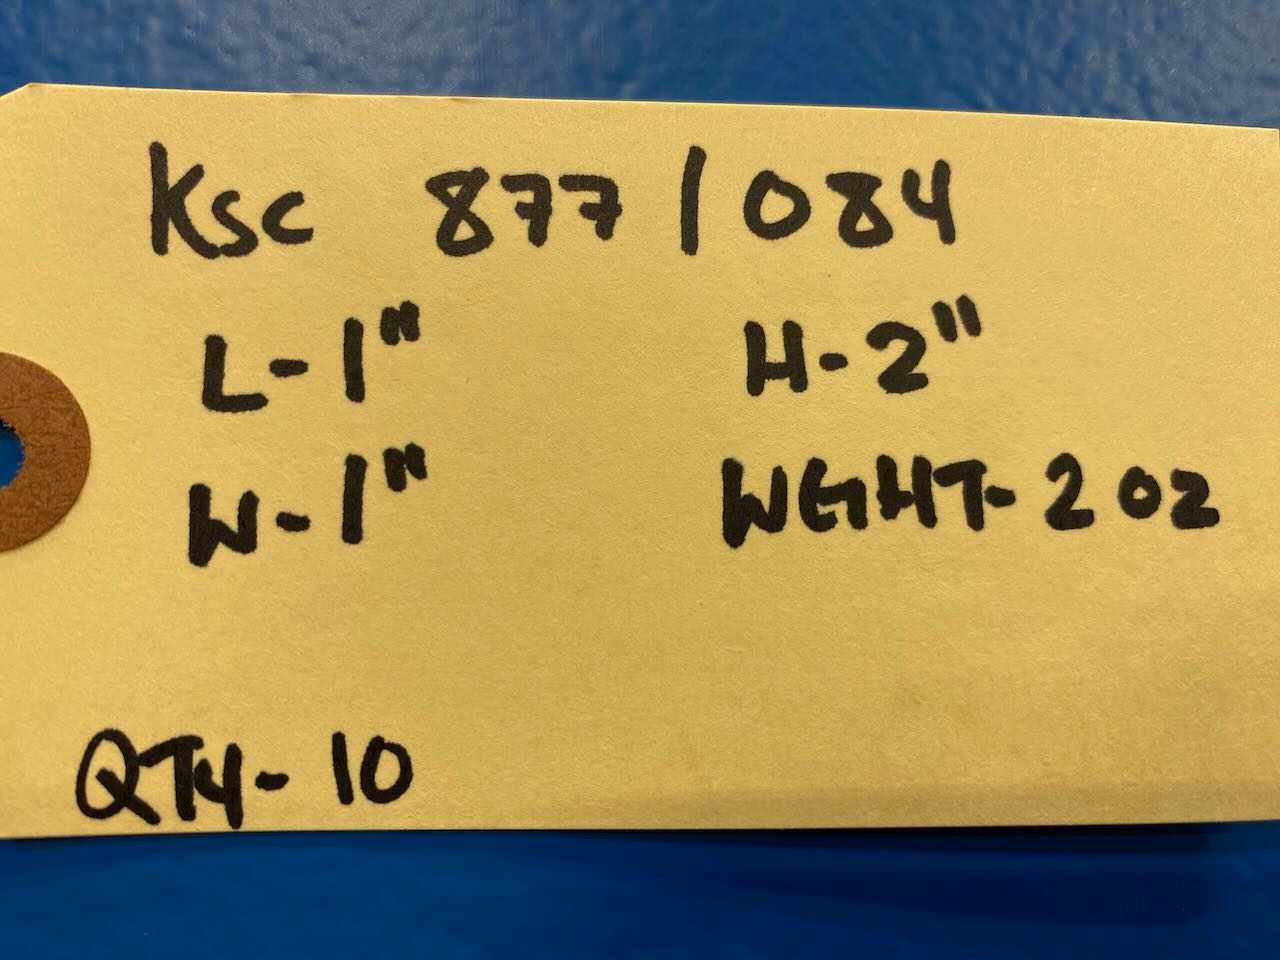 Ksc 877/084
L-1" H-2"
W-1" WGHT-2 oz
QTY-10